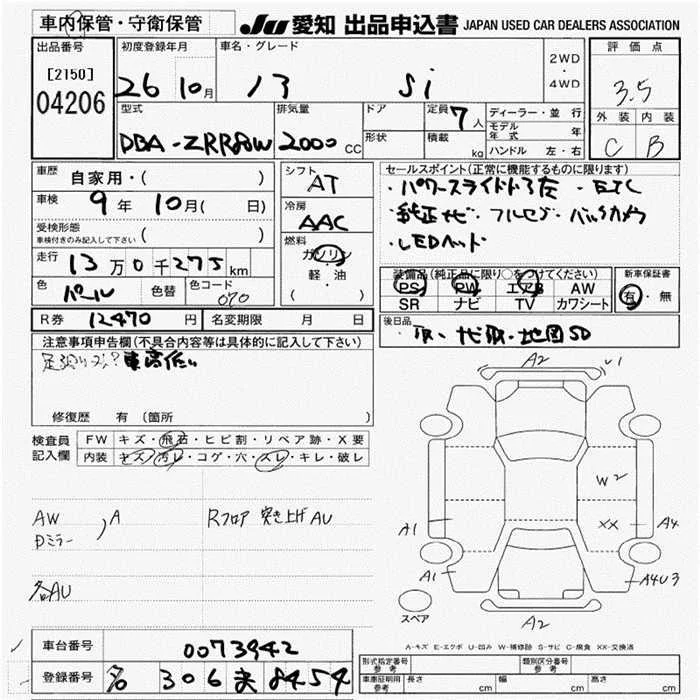 車内保管・守衛保管
JU 愛知 出品申込書 JAPAN USED CAR DEALERS ASSOCIATION
出品番号
[2150]
04206
初度登録年月
26 10月
車名・グレード
Si
2WD
・
4WD
評価点
3.5
外装 内装
C B
型式
DBA-ZRR80W
排気量
2000 CC
ドア
形状
定員 7人
積載 kg
ディーラー・並行
モデル年式 年
ハンドル 左・右
車歴 自家用・( )
車検 9年 10月( 日)
受検形態
車検付きのみ記入して下さい ( )
走行 13万0千275km
色 パール 色替 色コード 070
R券 12470円 名変期限 月 日
シフト
AT
冷房
AAC
燃料
ガソリン
軽・油
( )
セールスポイント(正常に機能するものに限ります)
・パワースライドドア左 ・ETC
・純正ナビ・フルセグ・バックカメラ
・LEDヘッド
装備品(純正品に限り○をつけてください) 新車保証書
PS PW エアB AW 有・無
SR ナビ TV カワシート
後日品
注意事項申告欄(不具合内容等は具体的に記入して下さい)
車高低い
修復歴 有 (箇所 )
検査員記入欄
FW キズ・飛石・ヒビ割・リペア跡・X要
内装 キズ・汚レ・コゲ・穴・スレ・キレ・破レ
AW
Dミラー
A
Rフロア 突き上げAU
各AU
A2
U1
W2
XX
A1
A4
A1
A4U3
A2
スペア
A-キズ E-エクボ U-凹み W-補修跡 S-サビ C-腐食 XX-交換済
車台番号 0073942
登録番号 306 8454
形式指定番号 参考
類別区分番号 参考
車庫証明用 参考
長さ cm
幅 cm
高さ cm